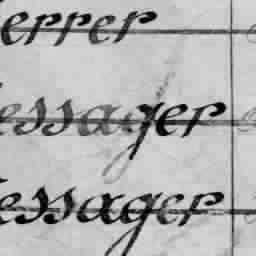 errer
essager
essager